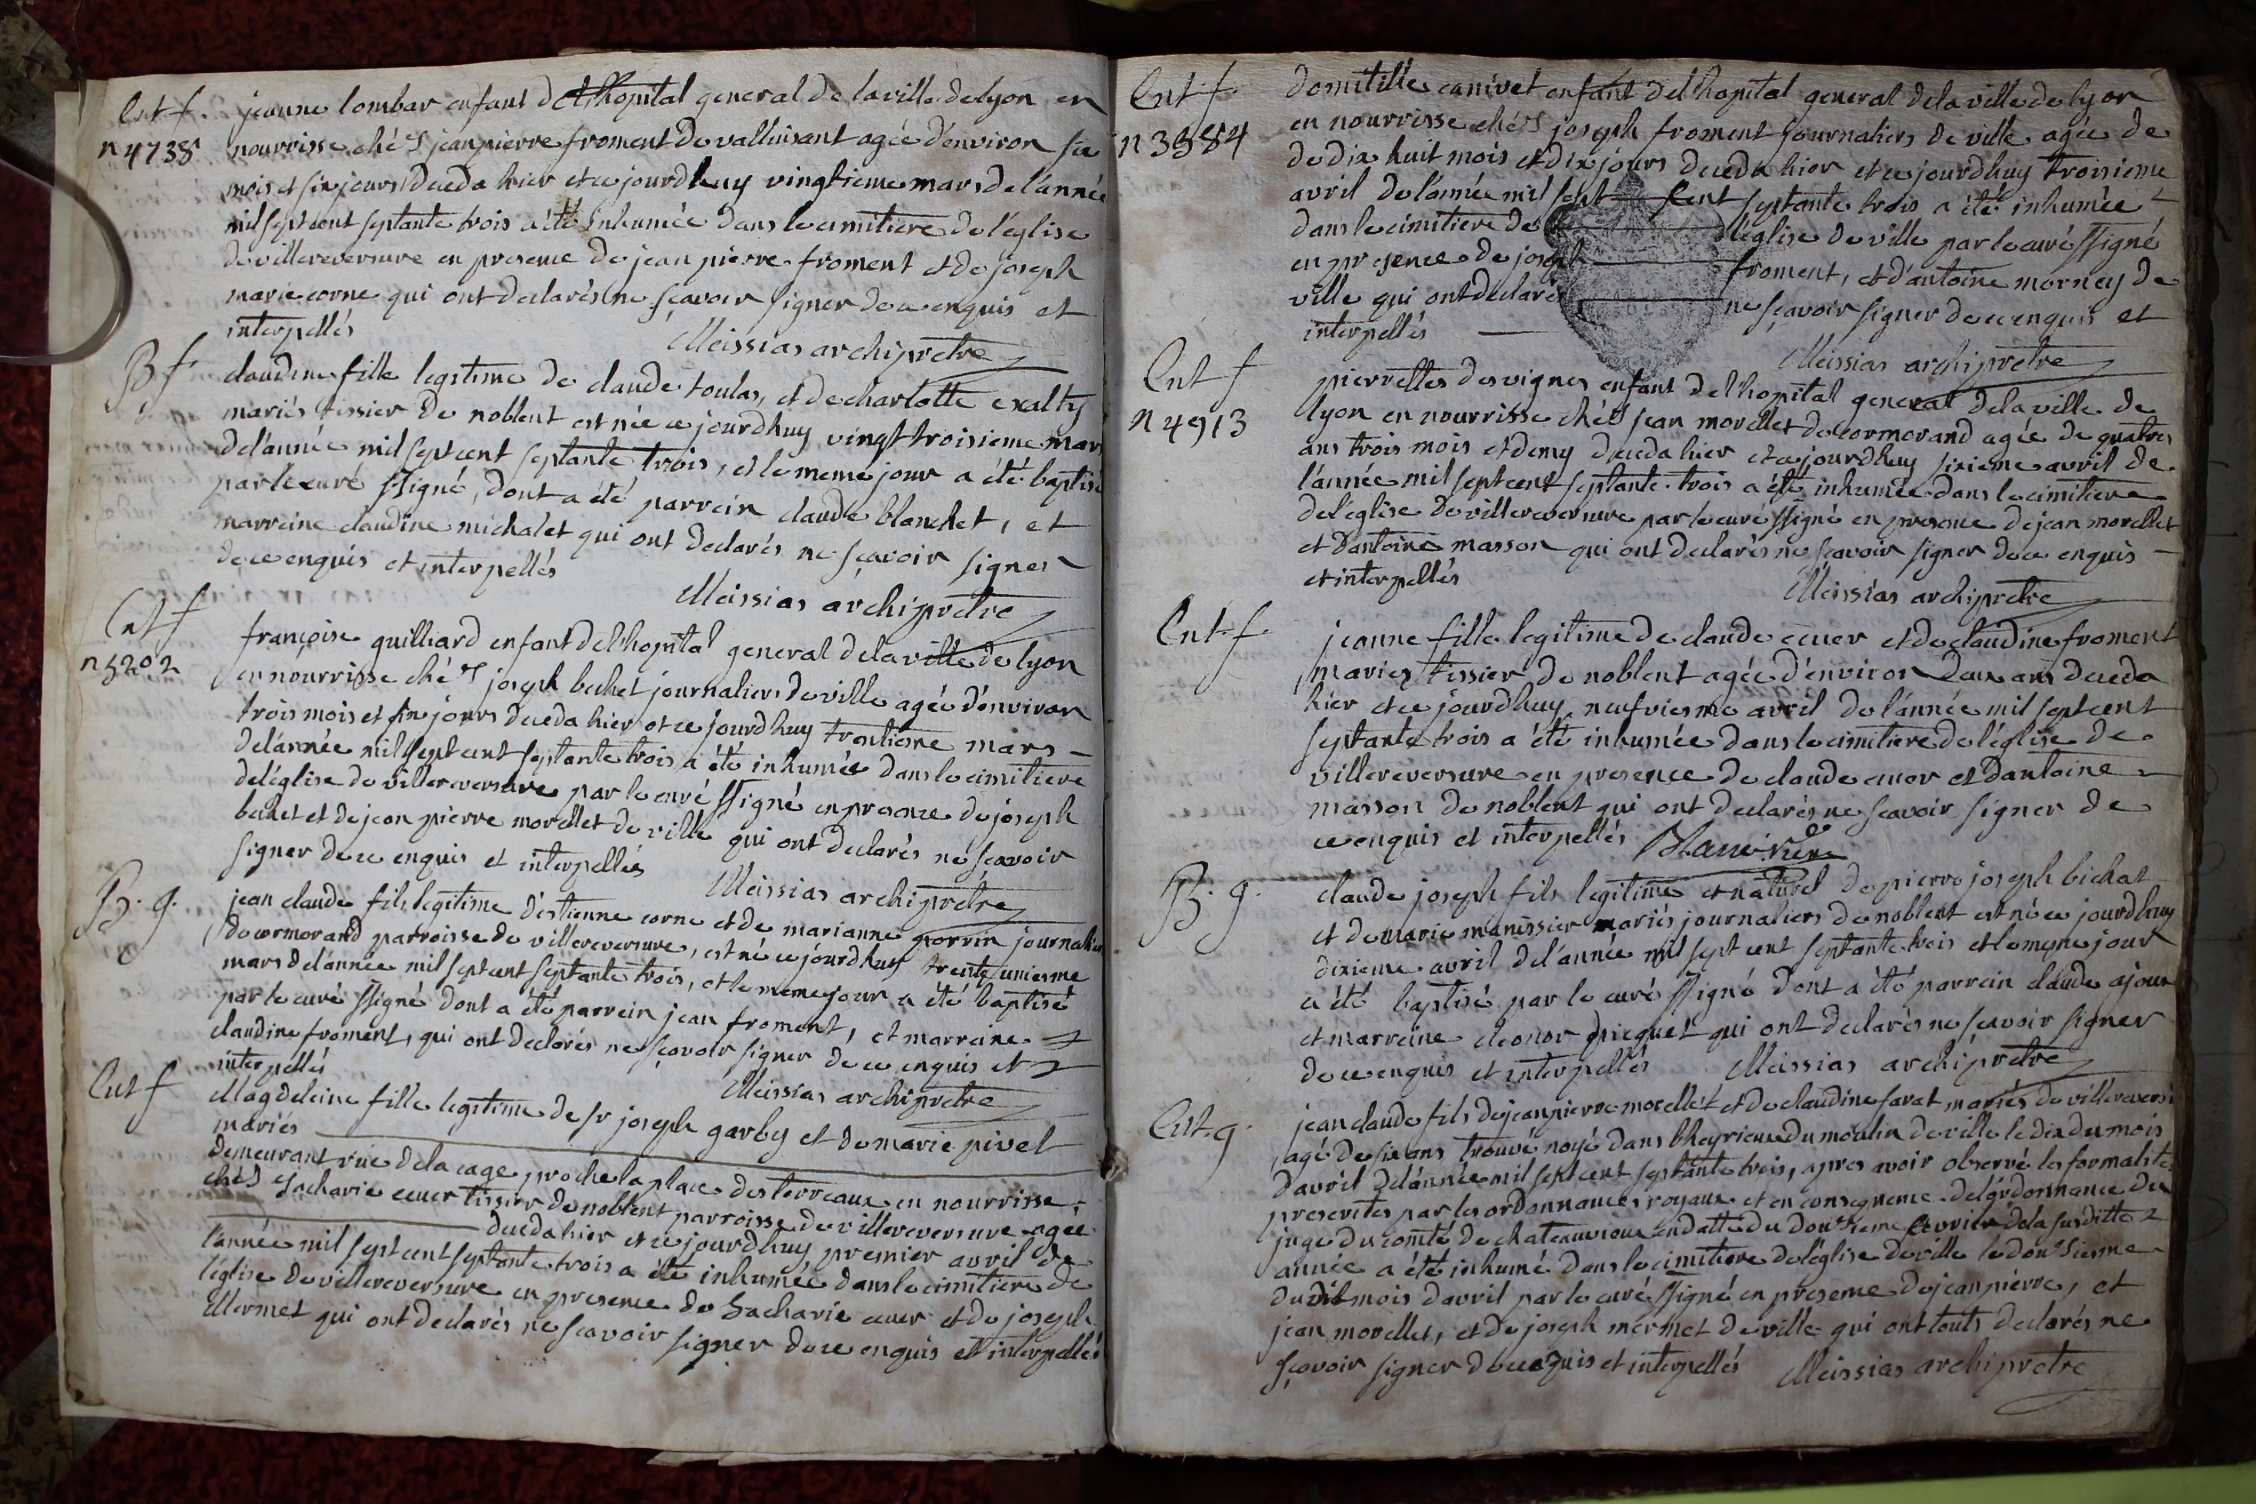 Ent. f. jeanne lombar enfant de l'hopital general de la ville de lyon en
n 4738 nourrisse chéz jean pierre froment de valluisant agée d'environ six
mois et six jours deceda hier et ce jourdhuy vingtieme mars de l'année
mil sept cent septante trois a été inhumée dans le cimitiere de l'église
de villereversure en presence de jean pierre froment et de joseph
marie corne qui ont declarés ne sçavoir signer de ce enquis et
interpellés Meissias archipretre
B f. claudine fille legitime de claude toulas, et de charlotte exalty
mariés tissier de noblent est née ce jourdhuy vingt troisieme mars
de l'année mil sept cent septante trois, et le meme jour a été baptisé
par le curé ssigné, dont a été parrein claude blanchet, et
marreine claudine michalet qui ont declarés ne sçavoir signer
de ce enquis et interpellés
Meissias archipretre
Ent f françoise guilliard enfant de l'hopital general de la ville de lyon
n 5202 en nourrisse chéz joseph bechet journaliers de ville agée d'environ
trois mois et six jours deceda hier et ce jourdhuy trentieme mars
de l'année mil sept cent septante trois, a été inhumée dans le cimitiere
de l'église de villereversure par le curé ssigné en presence de joseph
bechet et de jean pierre morellet de ville qui ont declarés ne sçavoir
signer de ce enquis et interpellés
Meissias archipretre
B. g. jean claude fils legitime d'estienne corne et de marianne perrin journalier
de cormorand parroisse de villereversure, est né ce jourdhuy trente uniesme
mars de l'année mil sept cent septante trois, et le meme jour a été baptisé
par le curé ssigné dont a été parrein jean froment, et marreine
claudine froment, qui ont declarés ne sçavoir signer de ce enquis et
interpellés Meissias archipretre
Ent f Magdeleine fille legitime de sr joseph garby et de marie pivet
mariés
demeurant rue de la cage proche la place des terreaux en nourrisse
chéz Zacharie cuer tissier de noblent parroisse de villereversure agée
deceda hier et ce jourdhuy premier avril de
l'année mil sept cent septante trois a été inhumée dans le cimitiere de
l'église de villereversure en presence de Zacharie cuer et de joseph
Mermet qui ont declarés ne sçavoir signer de ce enquis et interpellés
Ent. f. domitille canivet enfant de l'hopital general de la ville de lyon
n 3584 en nourrisse chéz joseph froment journaliers de ville agée de
de dix huit mois et dix jours deceda hier et ce jourdhuy troisieme
avril de l'année mil sept cent septante trois a été inhumée
dans le cimitiere de l'église de ville par le curé ssigné
en presence de joseph froment, et d'antoine morney de
ville qui ont declarés ne sçavoir signer de ce enquis et
interpellés
Meissias archipretre
Ent f pierrettes desvignes enfant de l'hopital general de la ville de
n 4913 lyon en nourrisse chéz jean morellet de cormorand agée de quatres
ans trois mois et demy deceda hier et ce jourdhuy sixieme avril de
l'année mil sept cent septante trois a été inhumée dans le cimitiere
de l'église de villereversure par le curé ssigné en presence de jean morellet
et d'antoine masson qui ont declarés ne sçavoir signer de ce enquis
et interpellés
Meissias archipretre
Ent. f. jeanne fille legitime de claude cuer et de claudine froment
mariez tissier de noblent agée d'environ deux ans deceda
hier et ce jourdhuy neufviesme avril de l'année mil sept cent
septante trois a été inhumée dans le cimitiere de l'église de
villereversure en presence de claude cuer et d'antoine
masson de noblent qui ont declarés ne sçavoir signer de
ce enquis et interpellés
B. g. claude joseph fils legitime et naturel de pierre joseph bichat
et de marie manissier mariés journaliers de noblent est né ce jourdhuy
dixieme avril de l'année mil sept cent septante trois et le meme jour
a été baptisé par le curé ssigné dont a été parrein claude ajoux
et marreine eleonor picquet qui ont declarés ne sçavoir signer
de ce enquis et interpellés Meissias archiprêtre
Ent. g. jean claude fils de jean pierre morellet et de claudine favat mariés de villereversure
agé de six ans trouvé noyé dans du moulin de ville le dix du mois
d'avril de l'année mil sept cent septante trois, apres avoir observé les formalités
prescrites par les ordonnances royaux et en consequence de l'ordonnance du
juge du comté de chateauvieux en datte du douzieme de la susditte
année a été inhumé dans le cimitiere de l'église de ville le douziesme
du dit mois d'avril par le curé ssigné en presence de jean pierre, et
jean morellet, et de joseph mermet de ville qui ont touts declarés ne
sçavoir signer de ce enquis et interpellés Meissias archiprêtre